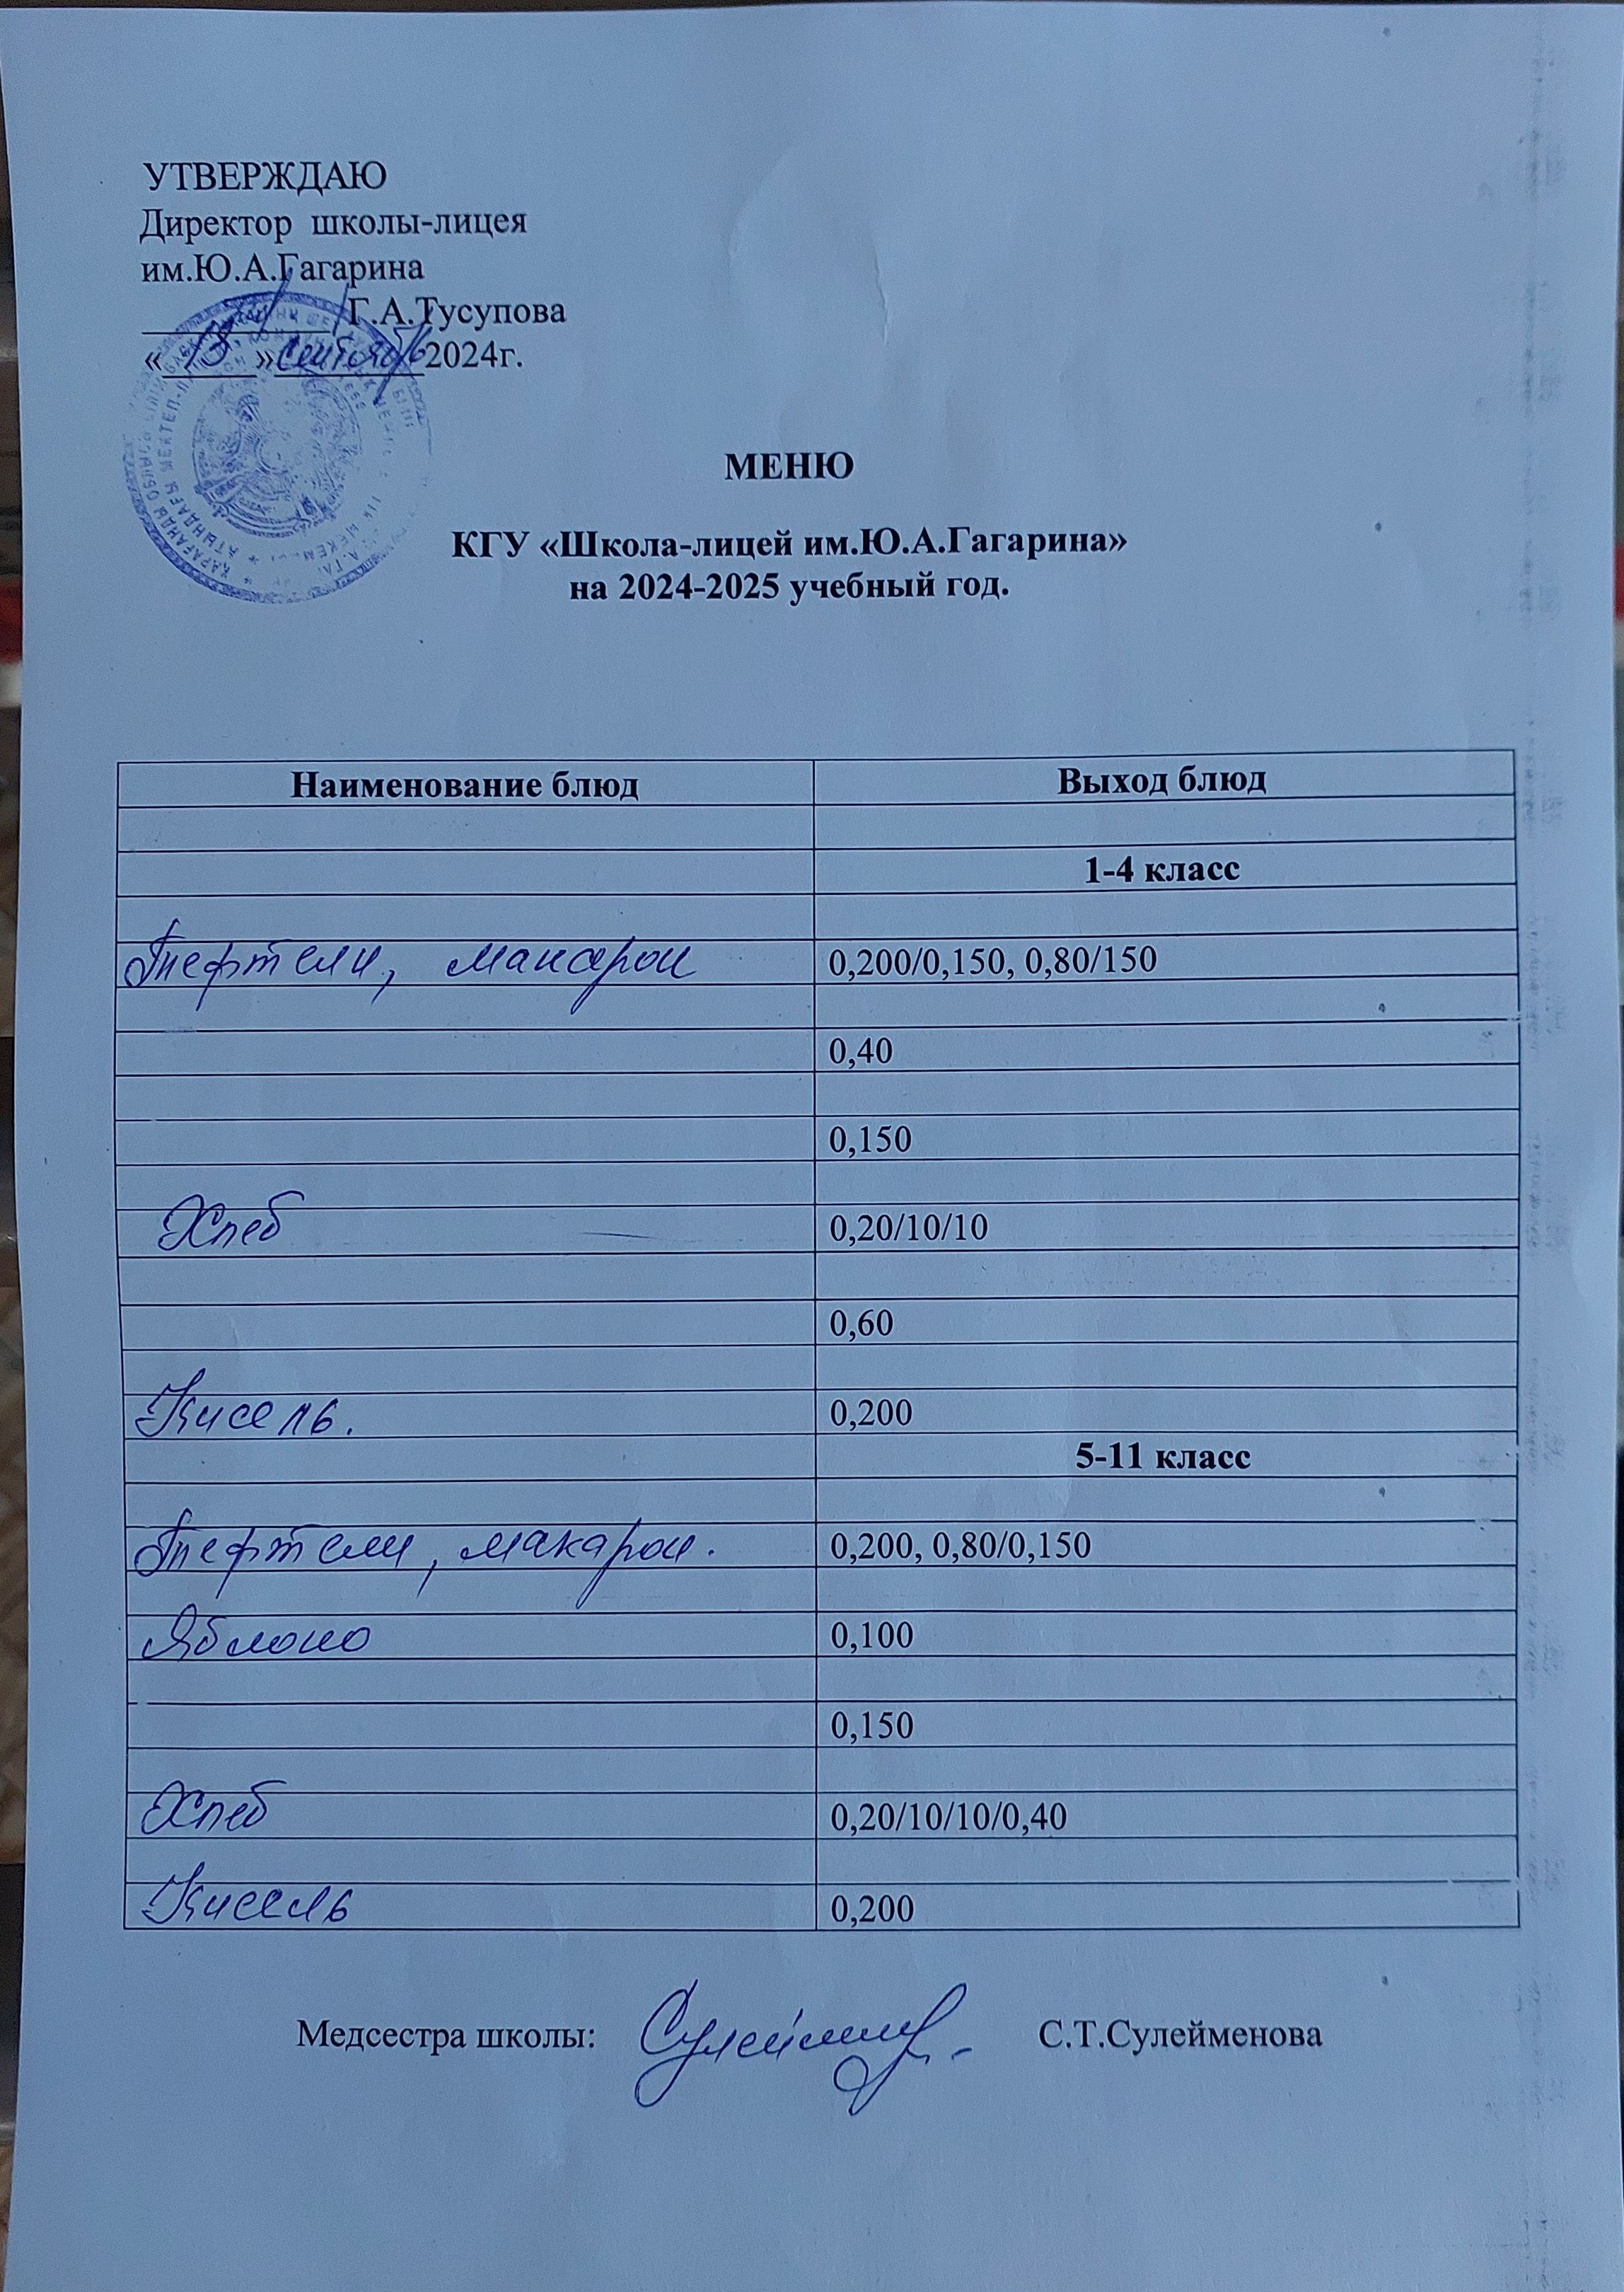 УТВЕРЖДАЮ
Директор школы-лицея
им.Ю.А.Гагарина
Г.А.Тусупова
«13» сентябрь 2024г.
МЕНЮ
КГУ «Школа-лицей им.Ю.А.Гагарина»
на 2024-2025 учебный год.
Наименование блюд Выход блюд
1-4 класс
Тефтели, макарон 0,200/0,150, 0,80/150
0,40
0,150
Хлеб 0,20/10/10
0,60
Кисель. 0,200
5-11 класс
Тефтели, макарон. 0,200, 0,80/0,150
Яблоко 0,100
0,150
Хлеб 0,20/10/10/0,40
Кисель 0,200
Медсестра школы: С.Т.Сулейменова